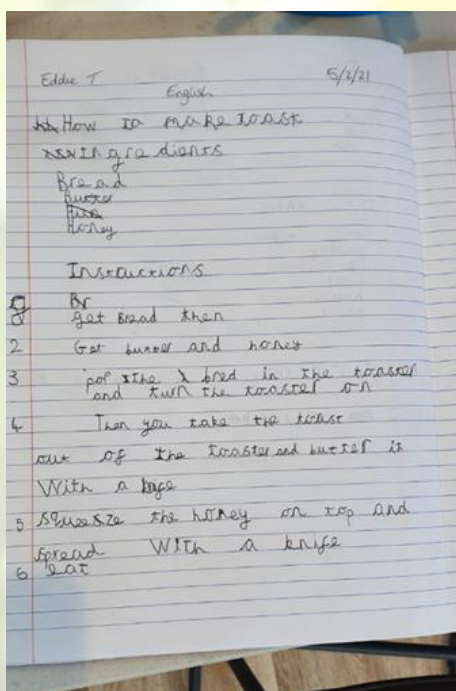 Eddie T 5/2/21
English
How to make toast
Ingredients
Bread
Butter
Honey
Instructions
Br
get Bread then
2 Get butter and honey
3 pop the bred in the toaster
and turn the toaster on
4 Then you take the toast
out of the toaster and butter it
With a
5 squeeze the honey on top and
spread With a knife
6 eat